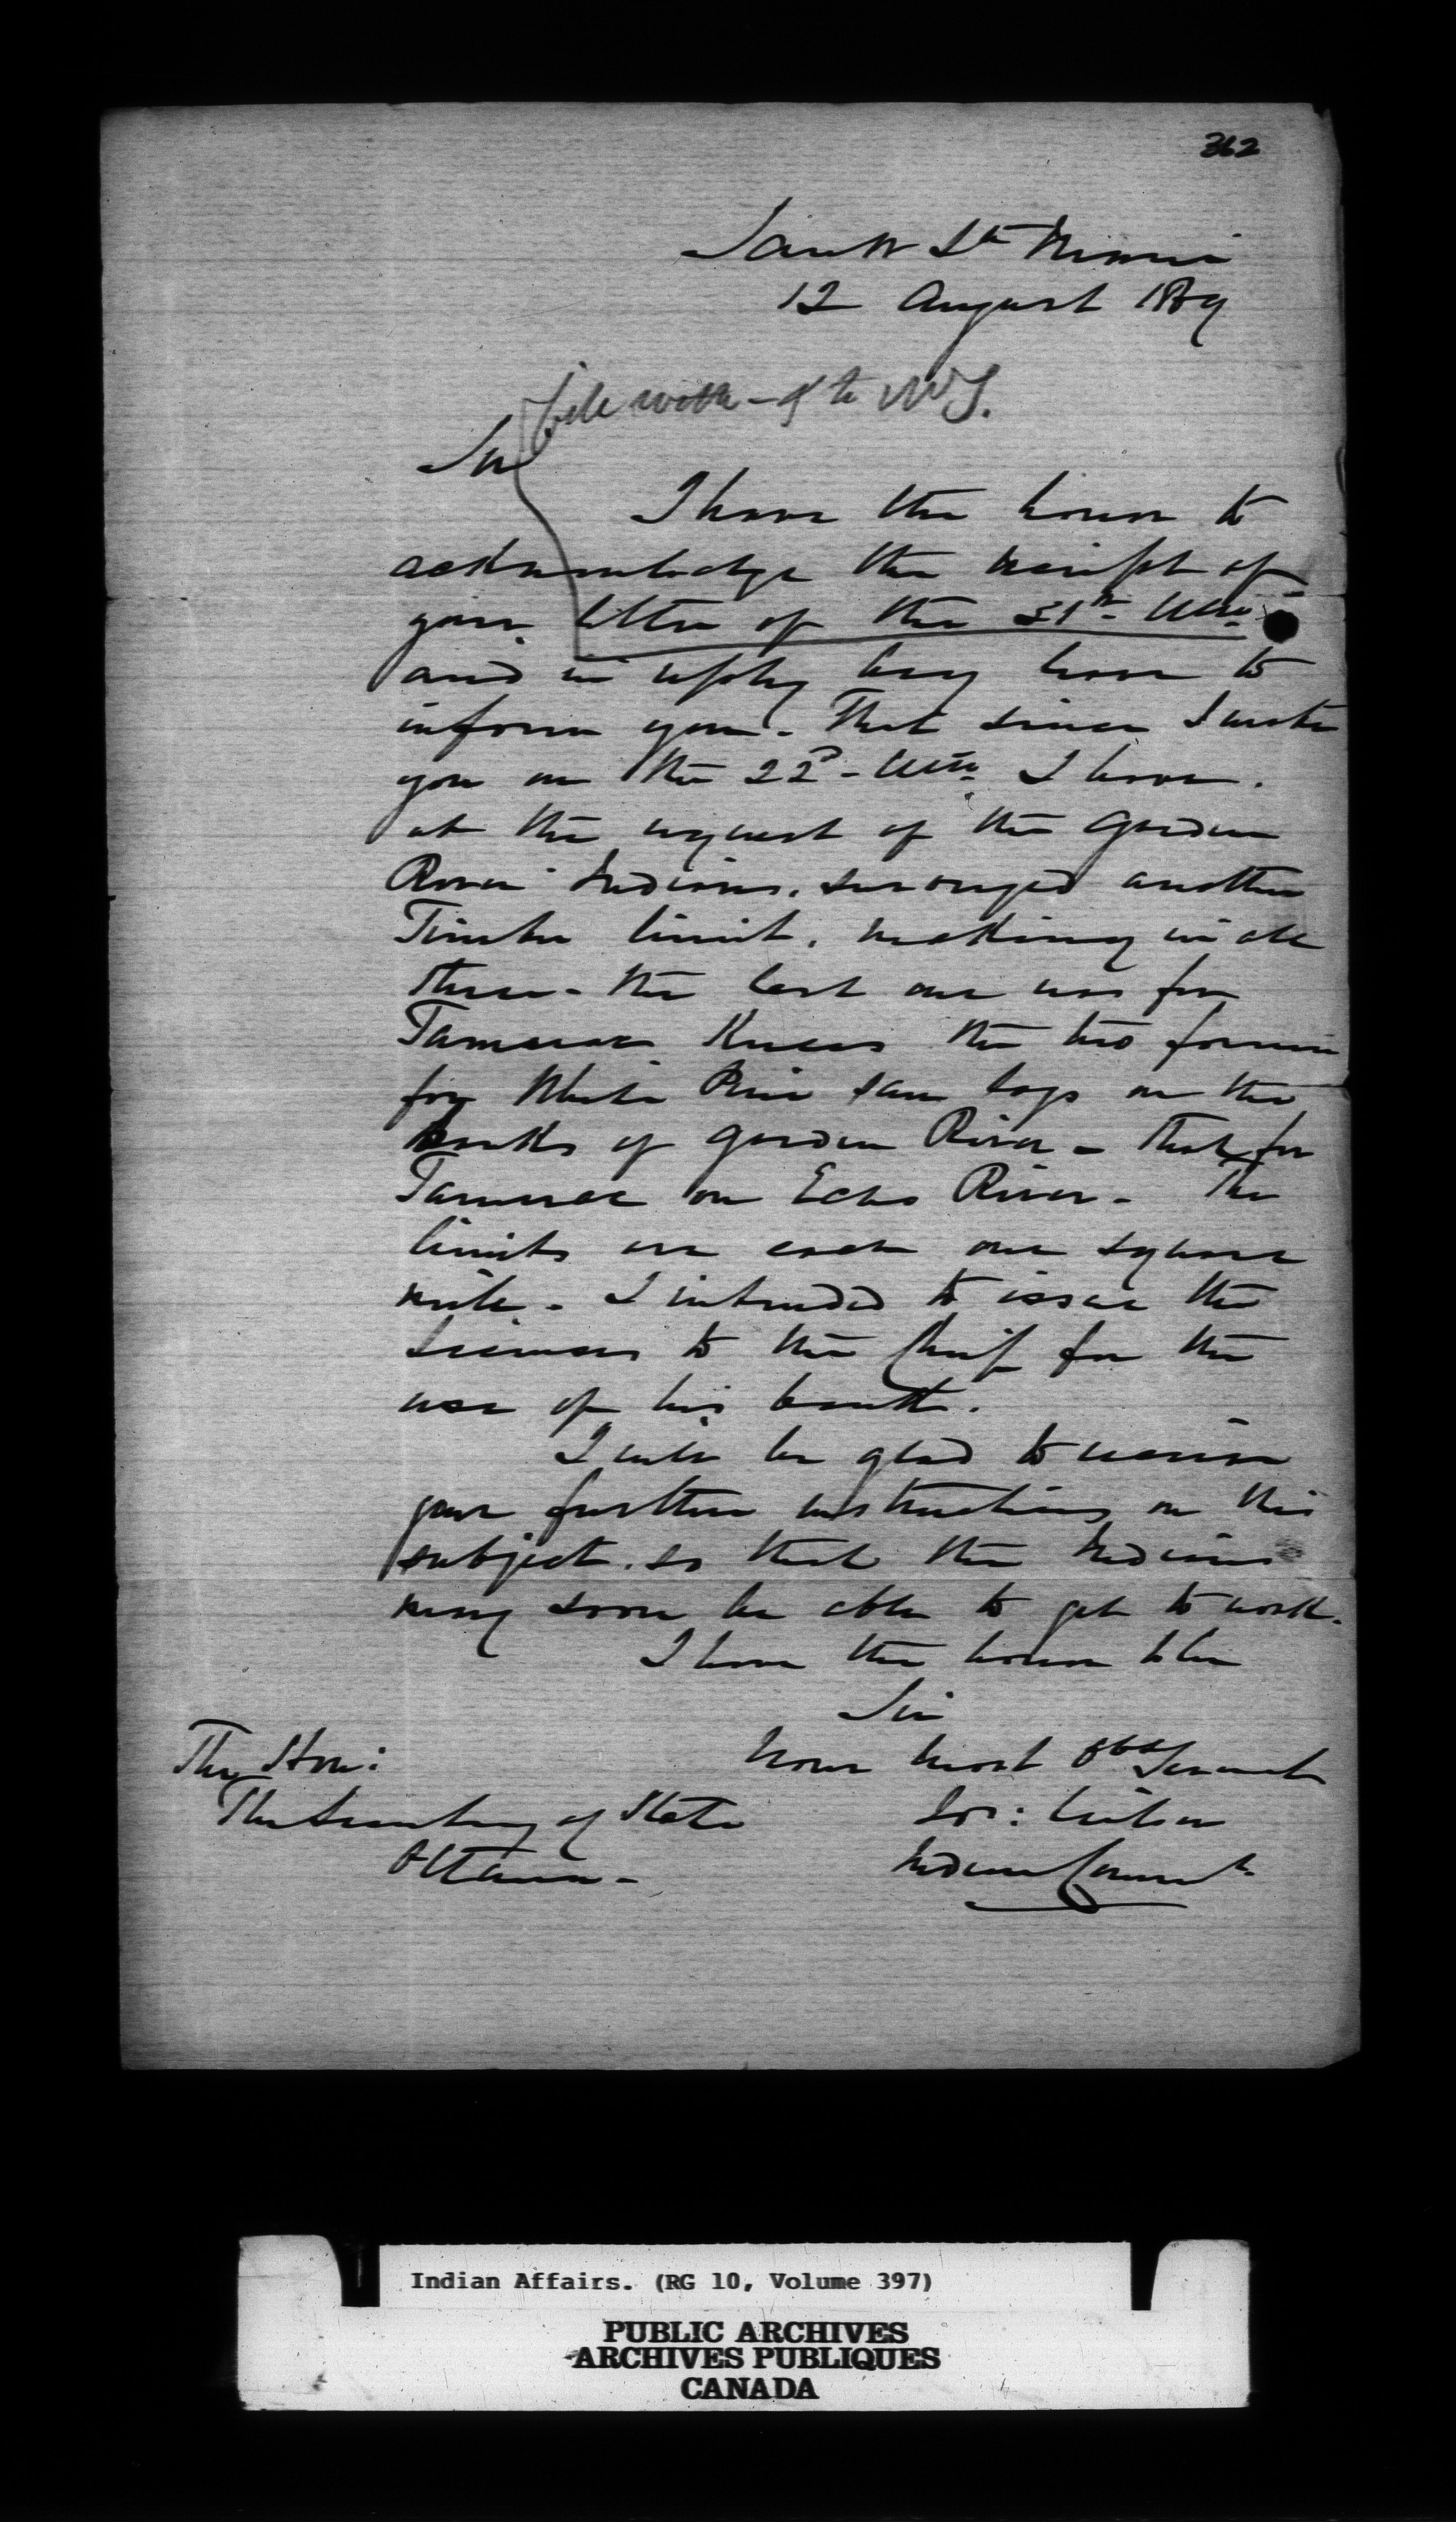 362
Sault Ste Marie
12 August 1869
file with - & to WS.
Sir
I have the honor to
acknowledge the receipt of
your letter of the 31st Ulto
and in reply beg leave to
inform you. That since I wrote
you on the 22d - Ulto I have.
at the request of the Garden
River Indians. surveyed another
Timber limit. making in all
three - the last one was for
Tamarac Knees the two former
for White Pine saw logs on the
banks of Garden River - that for
Tamarac on Echo River - The
limits are each one square
mile - I intended to issue the
Licenses to the Chief for the
use of his band.
I will be glad to receive
your further instructions on this
subject. so that the Indians
may soon be able to get to work.
I have the honor to be
Sir
Your most Obdt Servant
The Hon:
The Secretary of State
Wilson
Ottawa -
Indian Commr
Indian Affairs. (RG 10, Volume 397)
PUBLIC ARCHIVES
ARCHIVES PUBLIQUES
CANADA